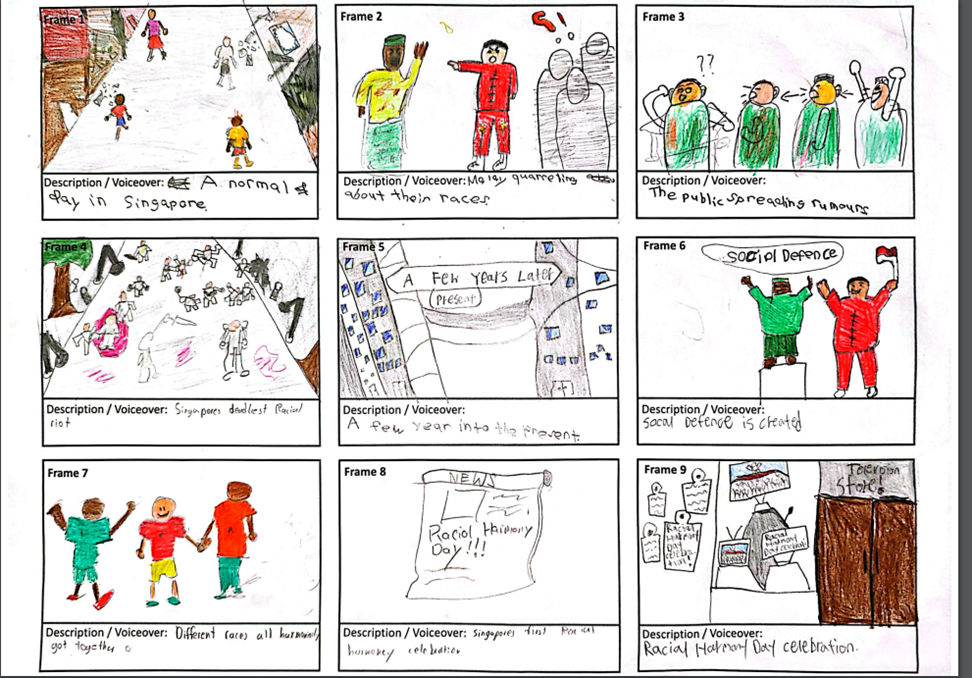 Frame 1
Description / Voiceover: A normal
day in Singapore.
Frame 2
?
!
Description / Voiceover: Malay quarreling
about their races
Frame 3
??
Description / Voiceover:
The public spreading rumours
Frame 4
Description / Voiceover: Singapores deadliest Racial
riot
Frame 5
A Few Years Later
Present
Description / Voiceover:
A few year into the present.
Frame 6
Social Defence
Description / Voiceover:
Socal Defence is created
Frame 7
Description / Voiceover: Different races all
got together
Frame 8
NEWS
Racial Harmony
Day!!!
Description / Voiceover: Singapores first Racial
celebration
Frame 9
Television
Store!
Racial
Harmony
Day
Racial
Harmony
Day celebration
Description / Voiceover:
Racial Harmony Day celebration.